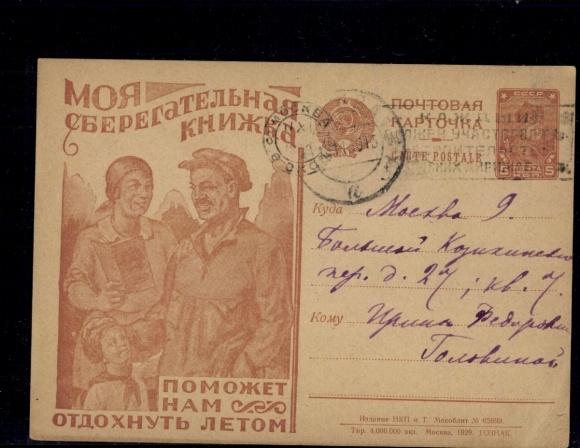 МОЯ
СБЕРЕГАТЕЛЬНАЯ
КНИЖКА
ПОМОЖЕТ
НАМ
ОТДОХНУТЬ ЛЕТОМ
МОСКВА
ПОЧТОВАЯ
КАРТОЧКА
CARTE POSTALE
СССР
5
5
Куда Москва 9.
Большой Козихинский
пер. д. 27; кв. 7.
Кому Ирине Федоровне
Головиной
Издание НКП и Т. Мособлит №
Тир. 4.000.000 экз. Москва, 1929. ГОЗНАК.